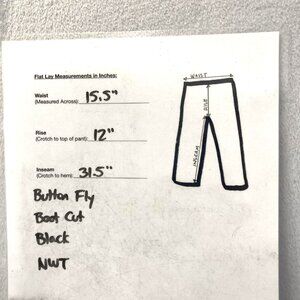 Flat Lay Measurements in Inches:
Waist
(Measured Across): 15.5"
Rise
(Crotch to top of pant): 12"
Inseam
(Crotch to hem): 31.5"
Button Fly
Boot Cut
Black
NWT
WAIST
RISE
INSEAM